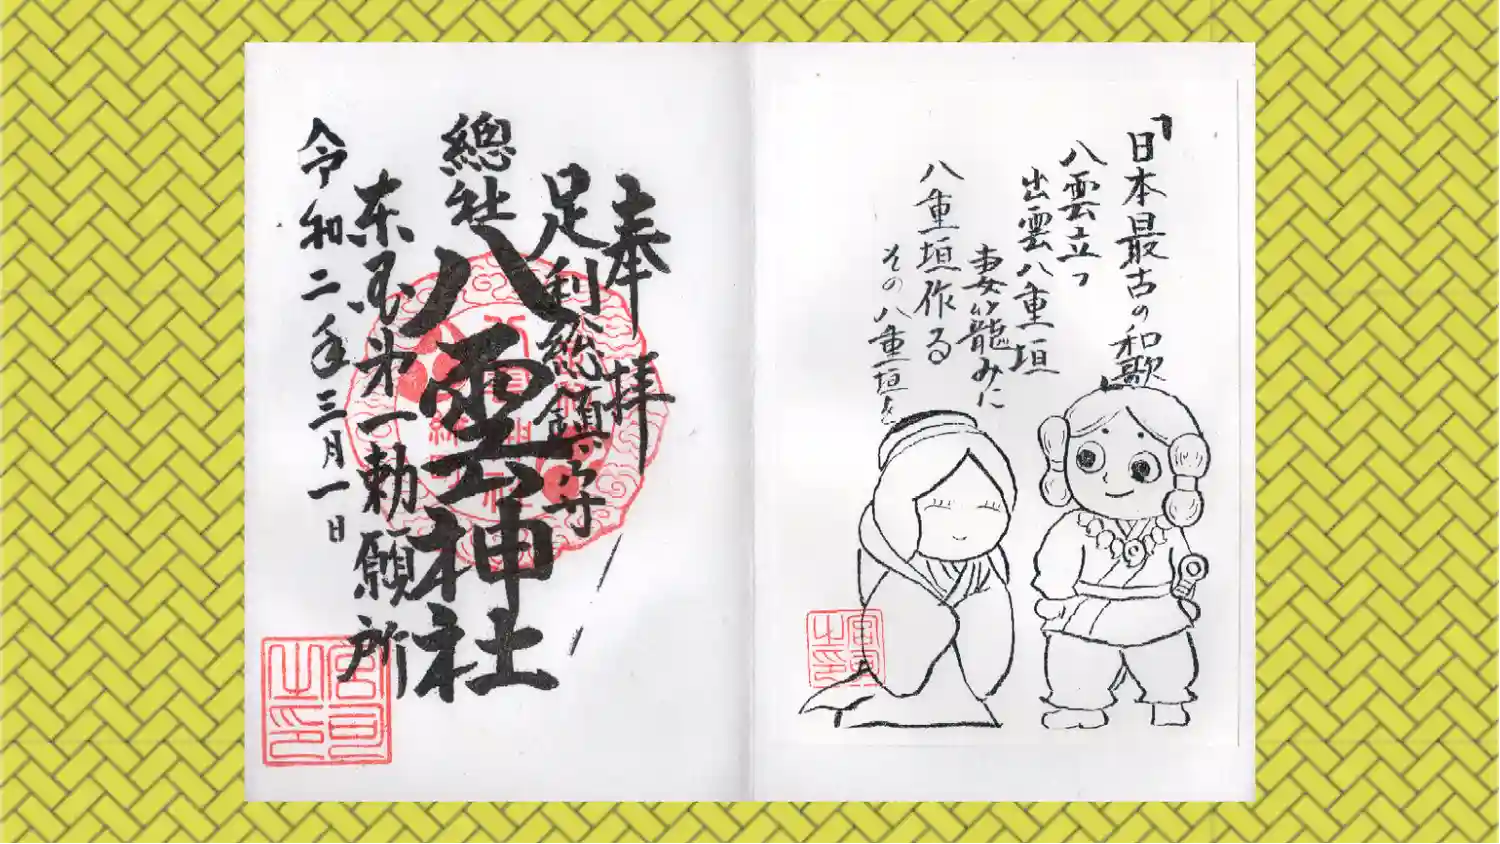 「日本最古の和歌」
八雲立つ
出雲八重垣
妻籠みに
八重垣作る
その八重垣を
奉拝
足利総鎮守
總社
八雲神社
東国第一勅願所
令和二年三月一日
宮司之印
宮司之印